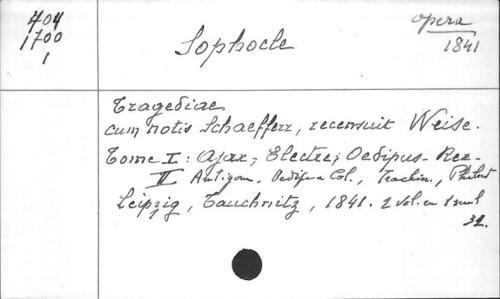 404
1700
1
Sophocle
opera
1841
Tragediae
cum notis Schaefferr, recensuit Weise.
Tome I : Ajax, Electre, Oedipus-Rex
II Antigon. Oedip a Col., Trachin., Philoct
Leipzig, Tauchnitz, 1841. 2 vol. en 1 seul
32.